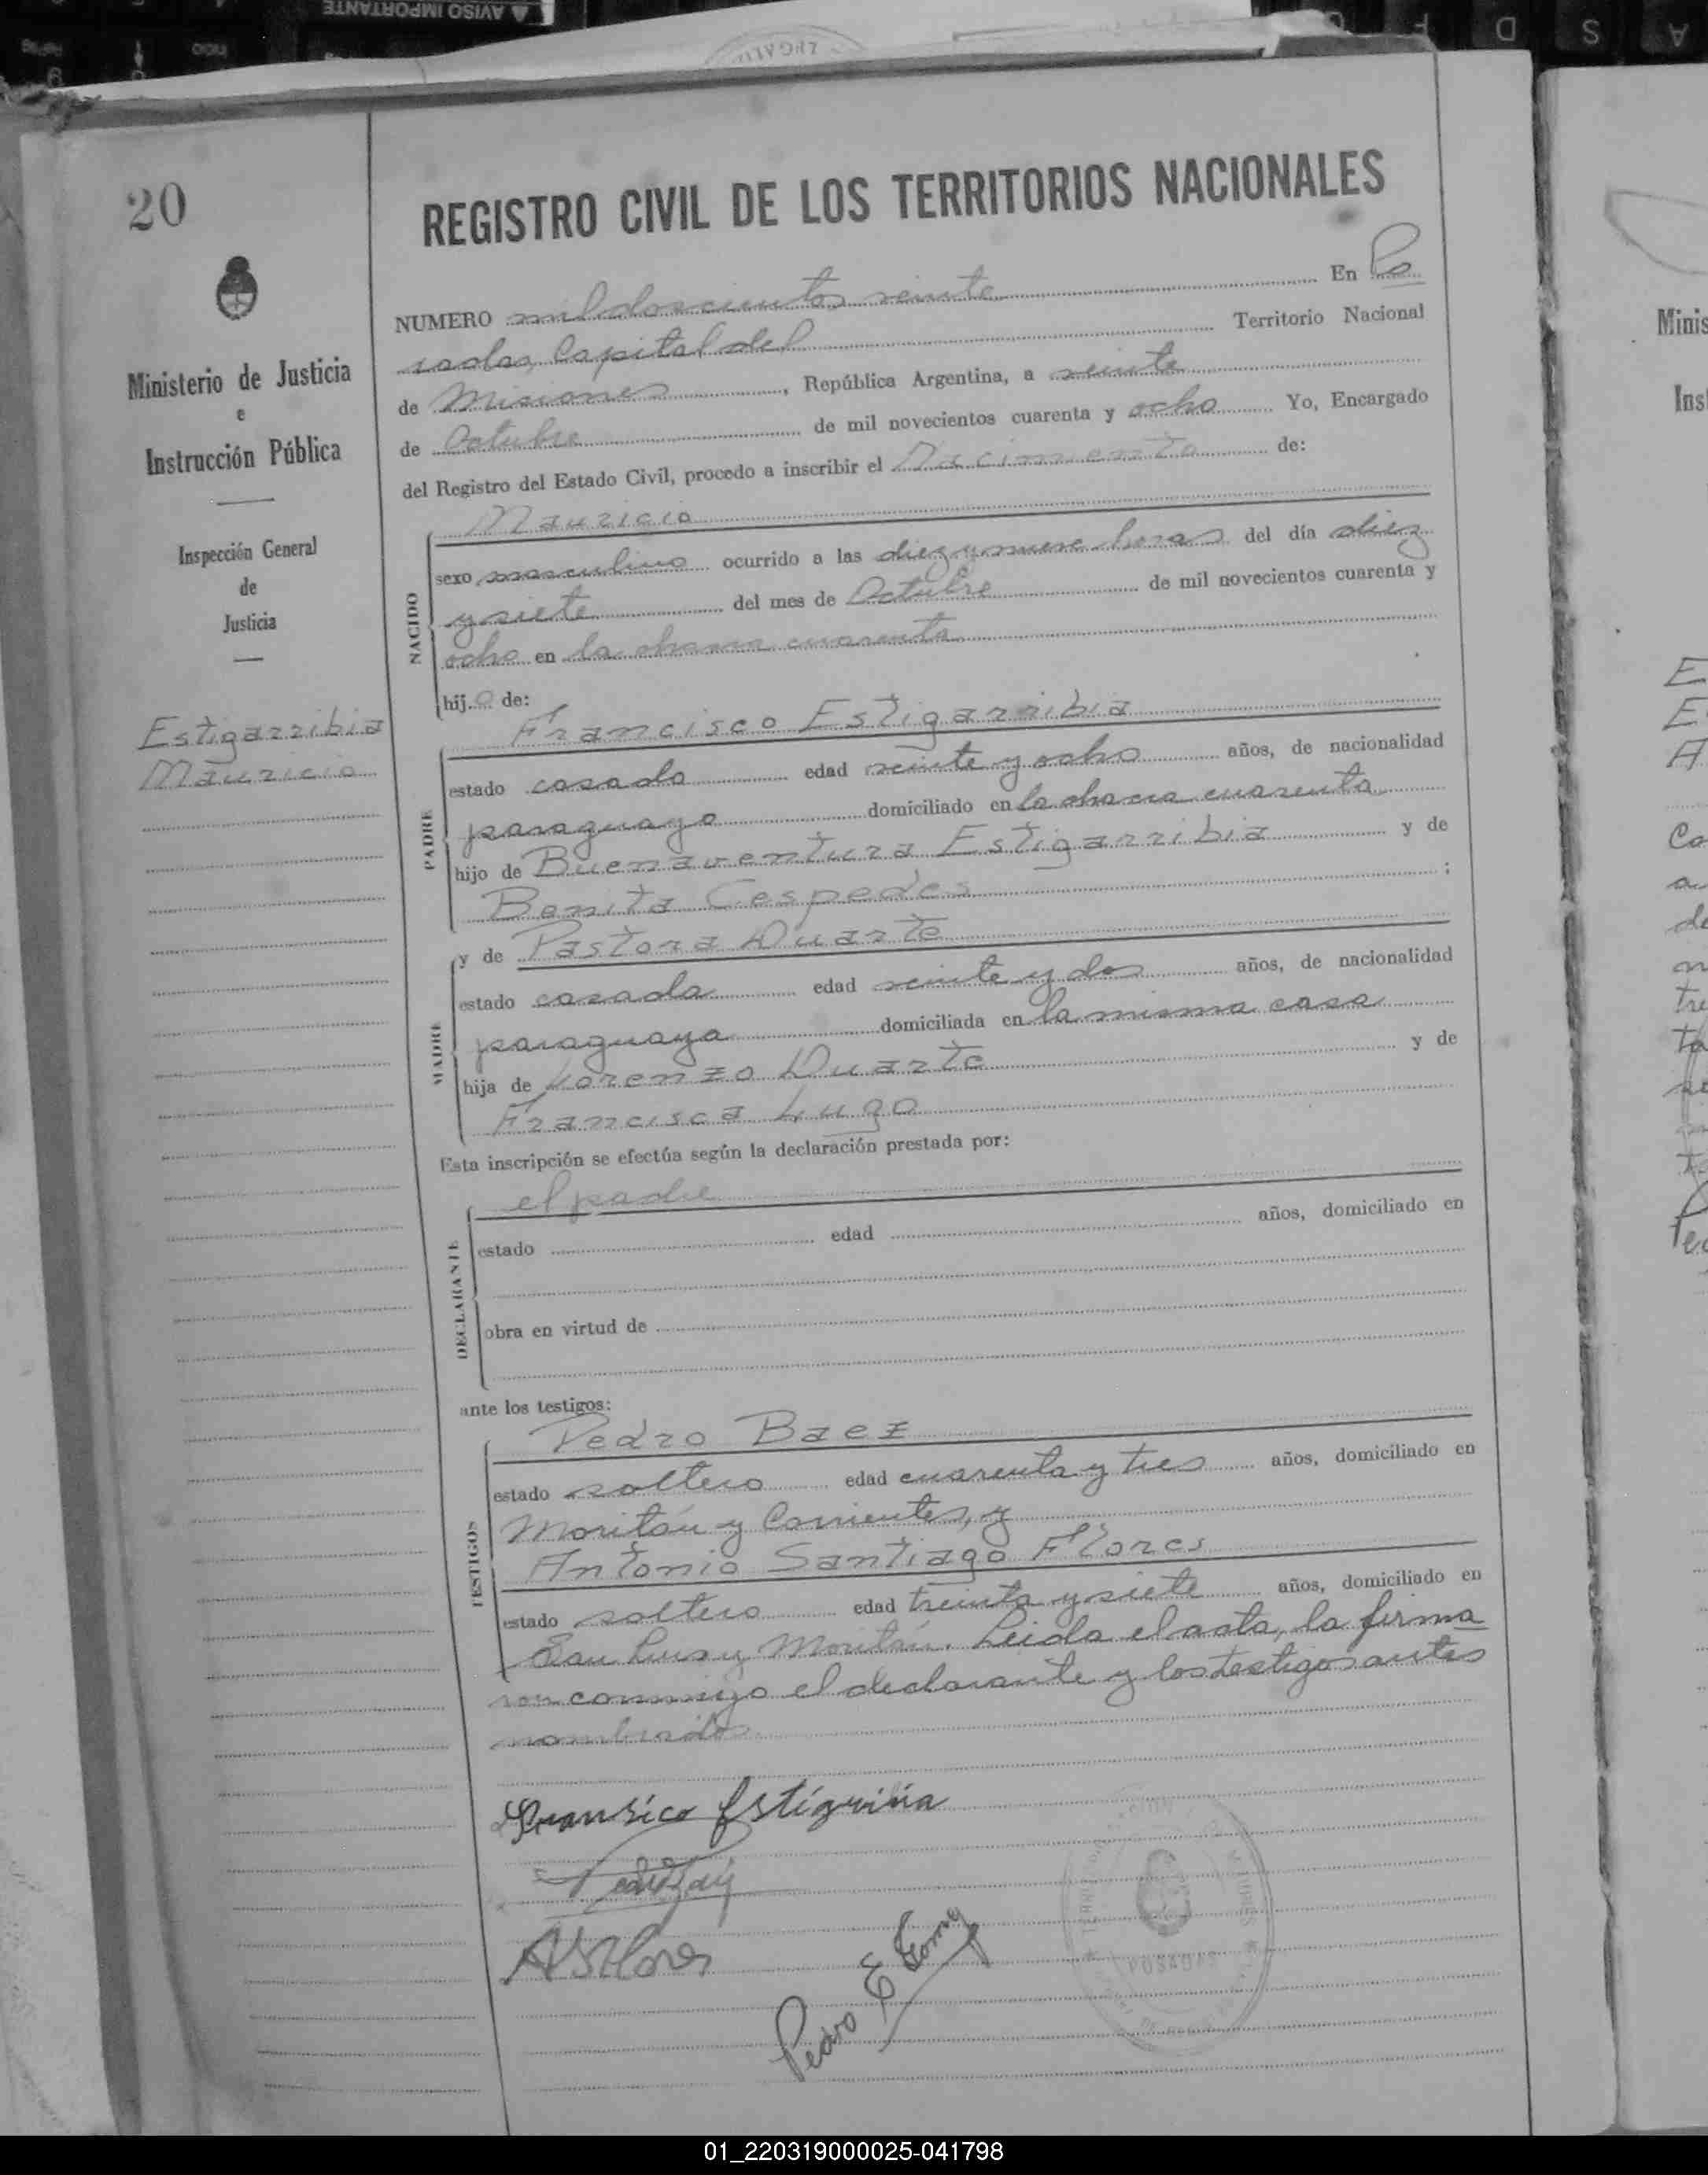 AVISO IMPORTANTE
20
REGISTRO CIVIL DE LOS TERRITORIOS NACIONALES
NUMERO mil doscientos veinte En Po
sadas, Capital del Territorio Nacional
de Misiones, República Argentina, a veinte
de Octubre de mil novecientos cuarenta y ocho Yo, Encargado
del Registro del Estado Civil, procedo a inscribir el Nacimiento de:
Ministerio de Justicia
e
Instrucción Pública
Inspección General
de
Justicia
Estigarribia
Mauricio
NACIDO
Mauricio
sexo masculino ocurrido a las diez y nueve horas del día diez
y siete del mes de Octubre de mil novecientos cuarenta y
ocho en la chacra cuarenta
hijo de:
PADRE
Francisco Estigarribia
estado casado edad veinte y ocho años, de nacionalidad
paraguayo domiciliado en la chacra cuarenta
hijo de Buenaventura Estigarribia y de
Benita Cespedes ;
MADRE
y de Pastora Duarte
estado casada edad veinte y dos años, de nacionalidad
paraguaya domiciliada en la misma casa
hija de Lorenzo Duarte y de
Francisca Lugo
Esta inscripción se efectúa según la declaración prestada por:
DECLARANTE
el padre
estado edad años, domiciliado en
obra en virtud de
ante los testigos:
TESTIGOS
Pedro Baez
estado soltero edad cuarenta y tres años, domiciliado en
Moritán y Corrientes, y
Antonio Santiago Flores
estado soltero edad treinta y siete años, domiciliado en
San Luis y Moritán. Leida el acta, la firma
ron conmigo el declarante y los testigos antes
nombrados
Fransico Estigriria
ASFlores
Pedro E Gomez
POSADAS
01_220319000025-041798